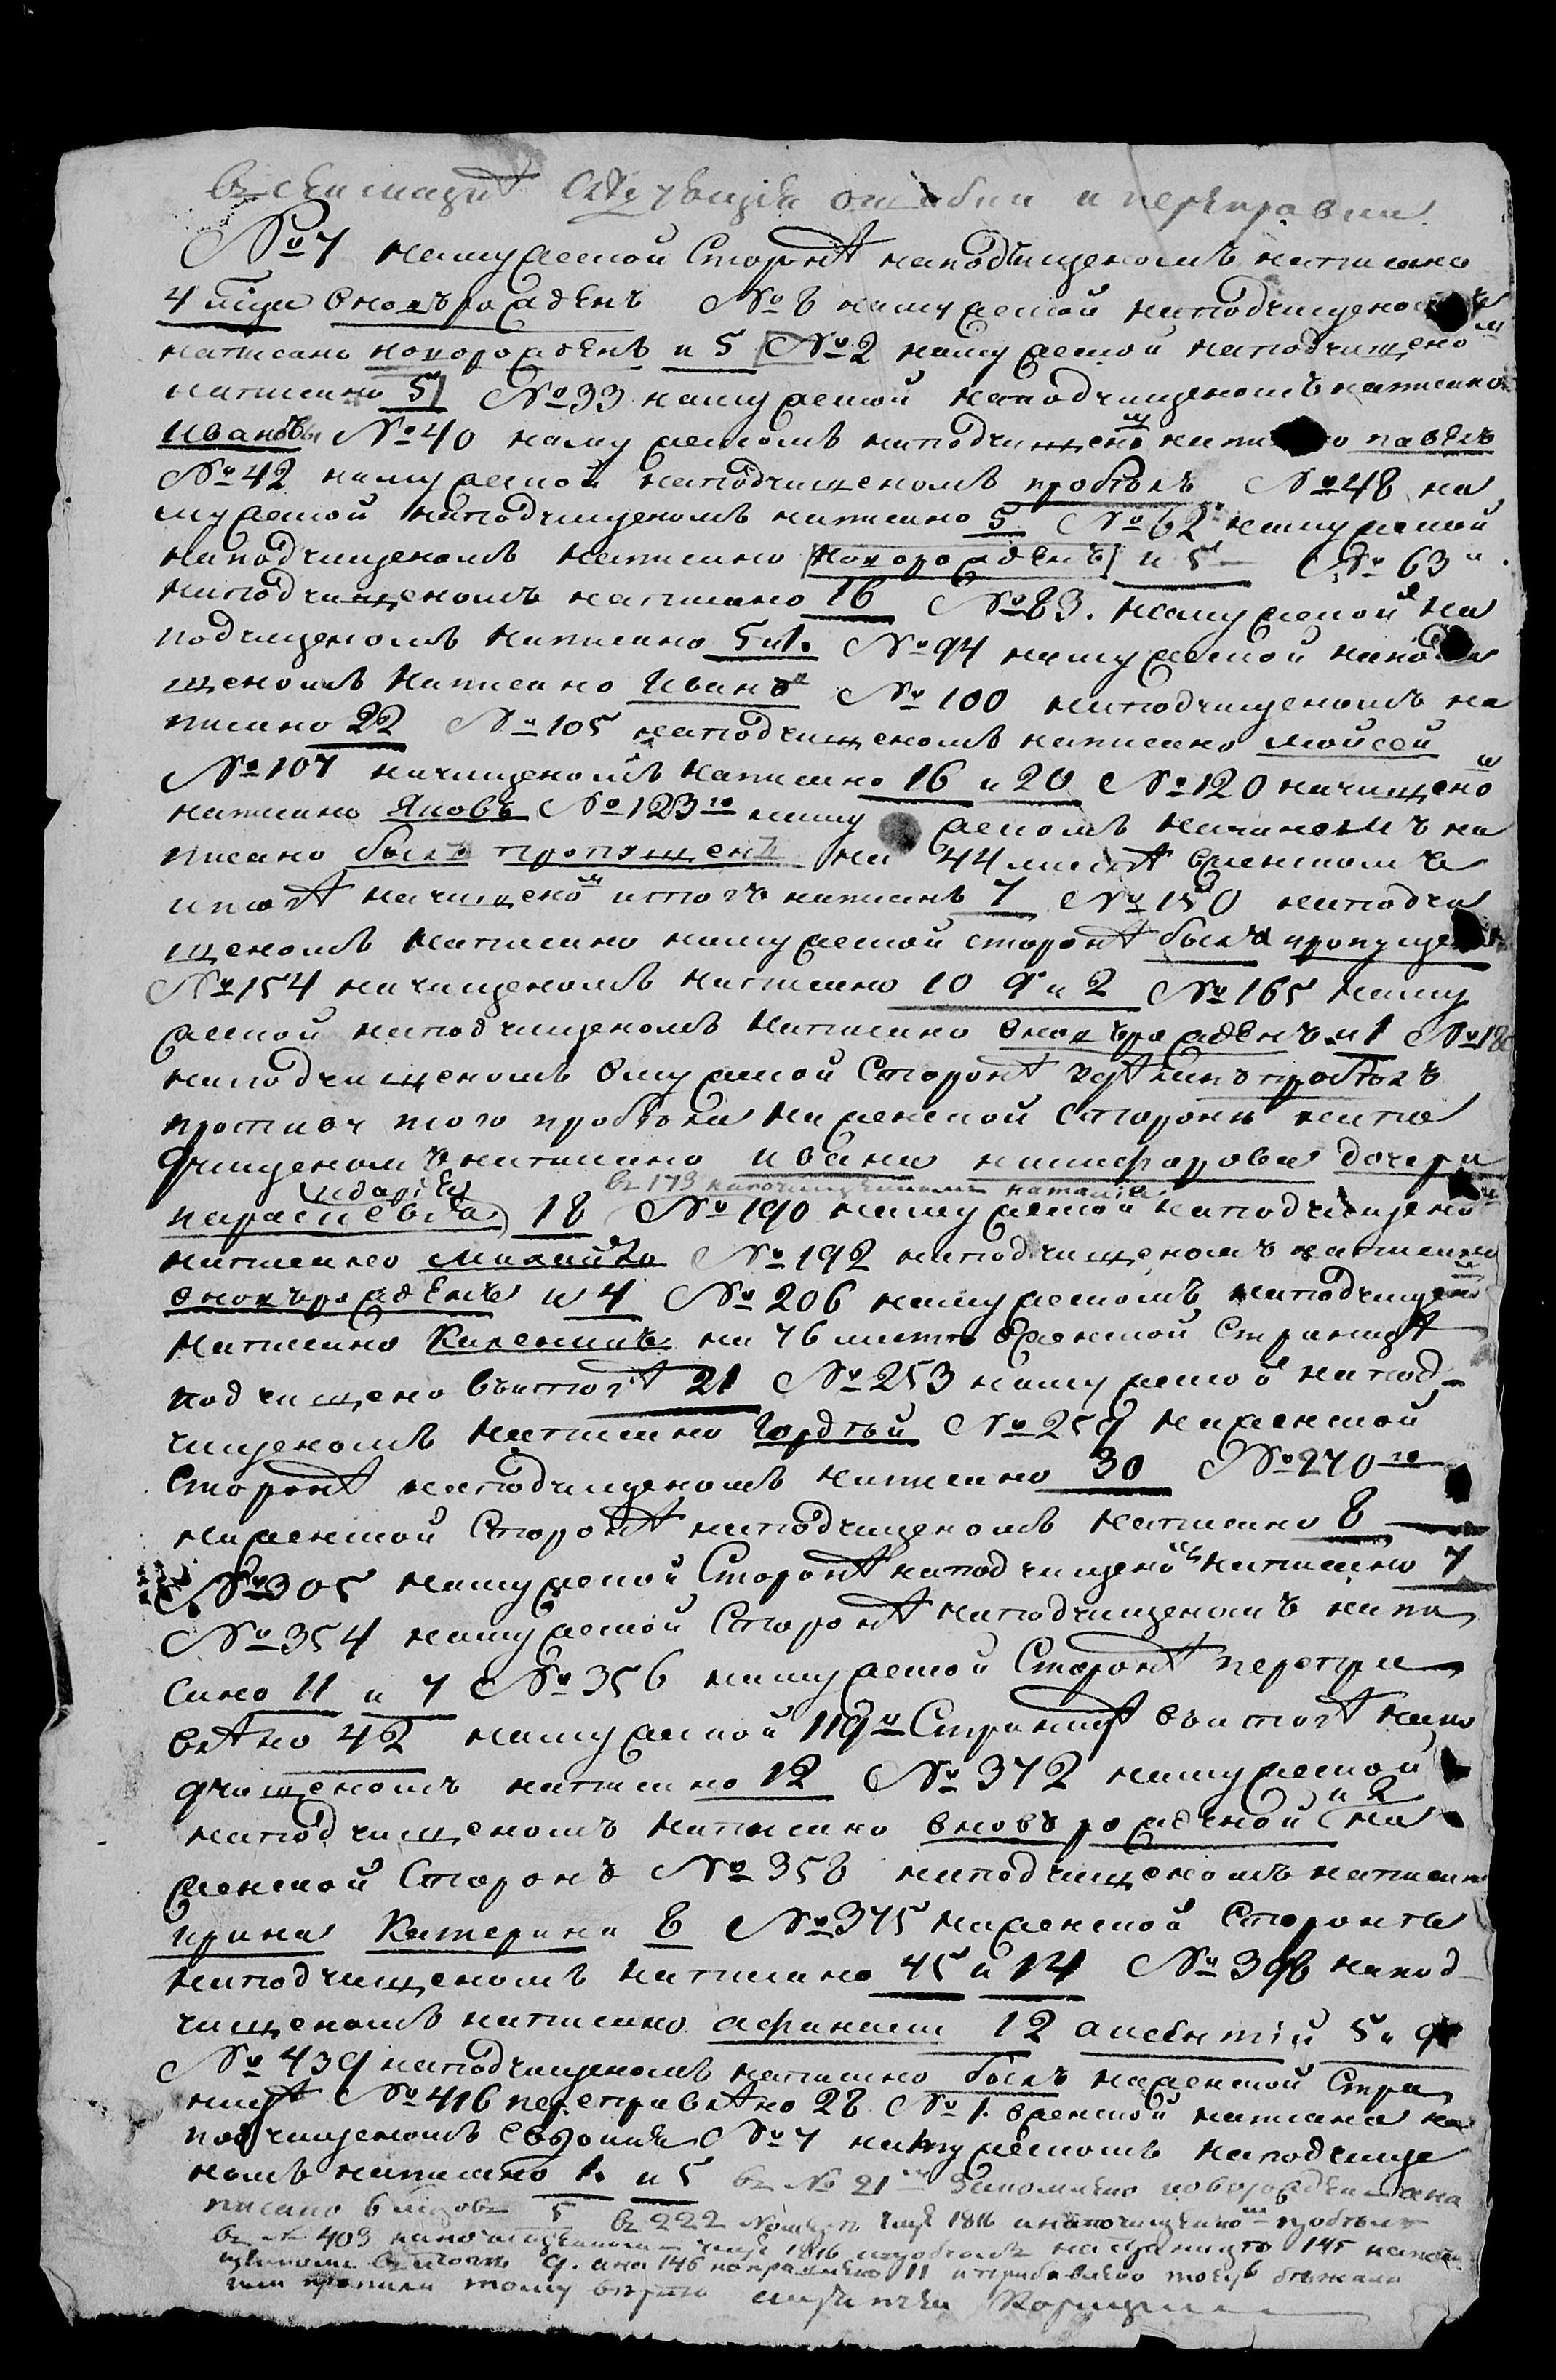 въ сей сказкѣ слѣдующія ошибки и переправки
№ 7 на мужеской сторонѣ на подчищеномъ написано
4 мца вновърожденъ № 8 на мужеской на подчищеномъ
написано новорожденъ и 5 № 2 на мужеской на подчищено
написано 5 № 33 на мужеской на подчищеномъ написано
Ивановъ № 40 на мужескомъ на подчищеном написано павелъ
№ 42 на мужеской на подчищеномъ пробѣлъ № 48 на
мужеской на подчищеномъ написано 5 № 62 на мужеской
на подчищеномъ написано новорожденъ и 5 № 63
на подчищеномъ написано 16 № 83. на мужеской на
подчищеномъ написано 5 и 1. № 94 на мужеской на подчи
щеномъ написано Иванъ № 100 на подчищеномъ на
писано 22 № 105 на подчищеномъ написано Мойсей
№ 107 на чищеномъ написано 16 и 20 № 120 на чищеном
написано Яковъ № 123го на мужескомъ на чищеномъ на
писано былъ пропущенъ на 44 листѣ в женскомъ
итогѣ на чищеном итогъ написанъ 7 № 150 на подчи
щеномъ написано на мужеской сторонѣ былъ пропущенъ
№ 154 на чищеномъ написано 10 9 и 2 № 165 на му
жеской на подчищеномъ написано вновърожденъ и 1 № 18
на подчищеномъ в мужеской сторонѣ пробѣлъ
противъ того пробѣла на женской стороне на по
дчищеномъ написано ивана никифорова дочери
идарья въ 173 на почищеномъ наталия
парасковья 18 № 190 на мужеской на подчищеном
написано Михайло № 192 на подчищеномъ написано
вновърожденъ и 4 № 206 на мужескомъ на подчищеном
написано на 76 листѣ в женской странице
подчищено въ итогѣ 21 № 253 на мужеской на под
чищеномъ написано Гордѣй № 259 на женской
сторонѣ на подчищеномъ написано 30 № 270го
на женской сторонѣ на подчищеномъ написано 8
№ 305 на мужеской сторонѣ на подчищеном написано 7
№ 354 на мужеской сторонѣ на подчищеномъ напи
сано 11 и 7 № 356 на мужеской сторонѣ перепра
влѣно 42 на мужеской 119й страницѣ въ итогѣ на по
дчищеномъ написано 12 № 372 на мужеской
на подчищеномъ написано вновърожденой и 2 на
женской сторонѣ № 358 на подчищеномъ написано
ирина Катерина 8 № 375 на женской стороне
на подчищеномъ написано 45 и 14 № 398 на под
чищеномъ написано афанасий 12 5 и 9
№ 439 на подчищеномъ написано былъ на женской стра
ницѣ № 416 переправлѣно 28 № 1. в женской написана на
подчищеномъ № 7 на мужескомъ на подчище
номъ написано 1. и 5 въ № 21 новорожден
писано 5 въ 222 1816 пробѣлъ
въ № 403 на почищеномъ 1816 и пробѣлъ на странице 145 на почи
щеномъ въ итоге 9. а на 146 поправлено 11 и прибавлено
тому верно